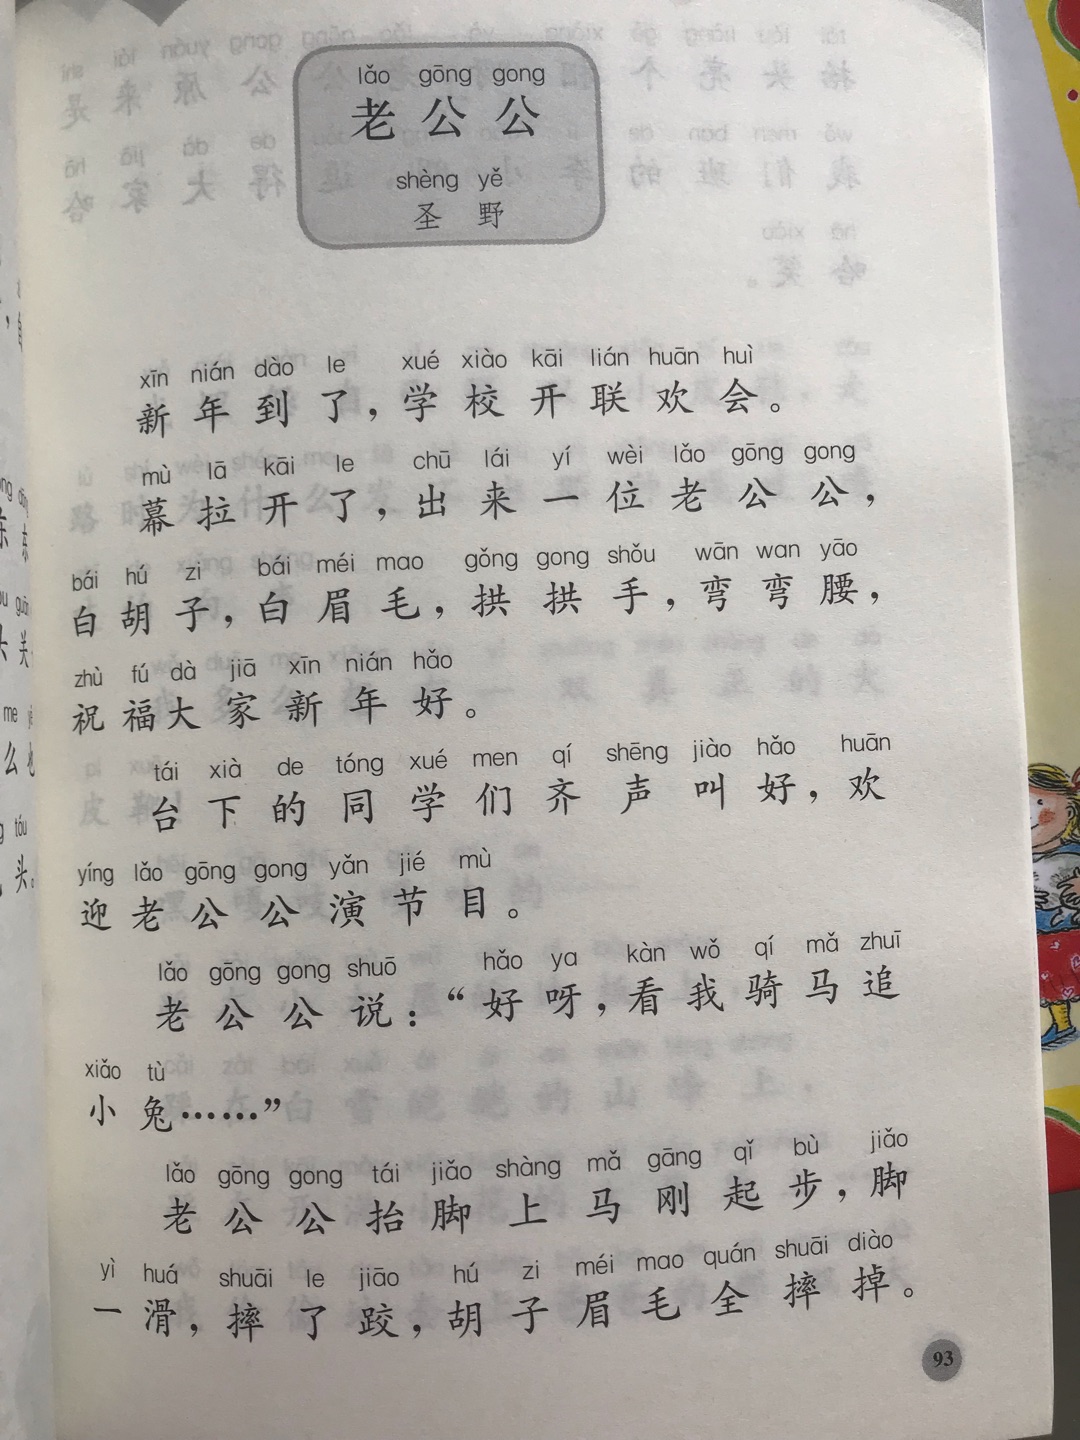 lǎo gōng gong
老公公
shèng yě
圣野
xīn nián dào le xué xiào kāi lián huān huì
新年到了，学校开联欢会。
mù lā kāi le chū lái yí wèi lǎo gōng gong
幕拉开了，出来一位老公公，
bái hú zi bái méi mao gǒng gong shǒu wān wan yāo
白胡子，白眉毛，拱拱手，弯弯腰，
zhù fú dà jiā xīn nián hǎo
祝福大家新年好。
tái xià de tóng xué men qí shēng jiào hǎo huān
台下的同学们齐声叫好，欢
yíng lǎo gōng gong yǎn jié mù
迎老公公演节目。
lǎo gōng gong shuō hǎo ya kàn wǒ qí mǎ zhuī
老公公说：“好呀，看我骑马追
xiǎo tù
小兔……”
lǎo gōng gong tái jiǎo shàng mǎ gāng qǐ bù jiǎo
老公公抬脚上马刚起步，脚
yì huá shuāi le jiāo hú zi méi mao quán shuāi diào
一滑，摔了跤，胡子眉毛全摔掉。
93